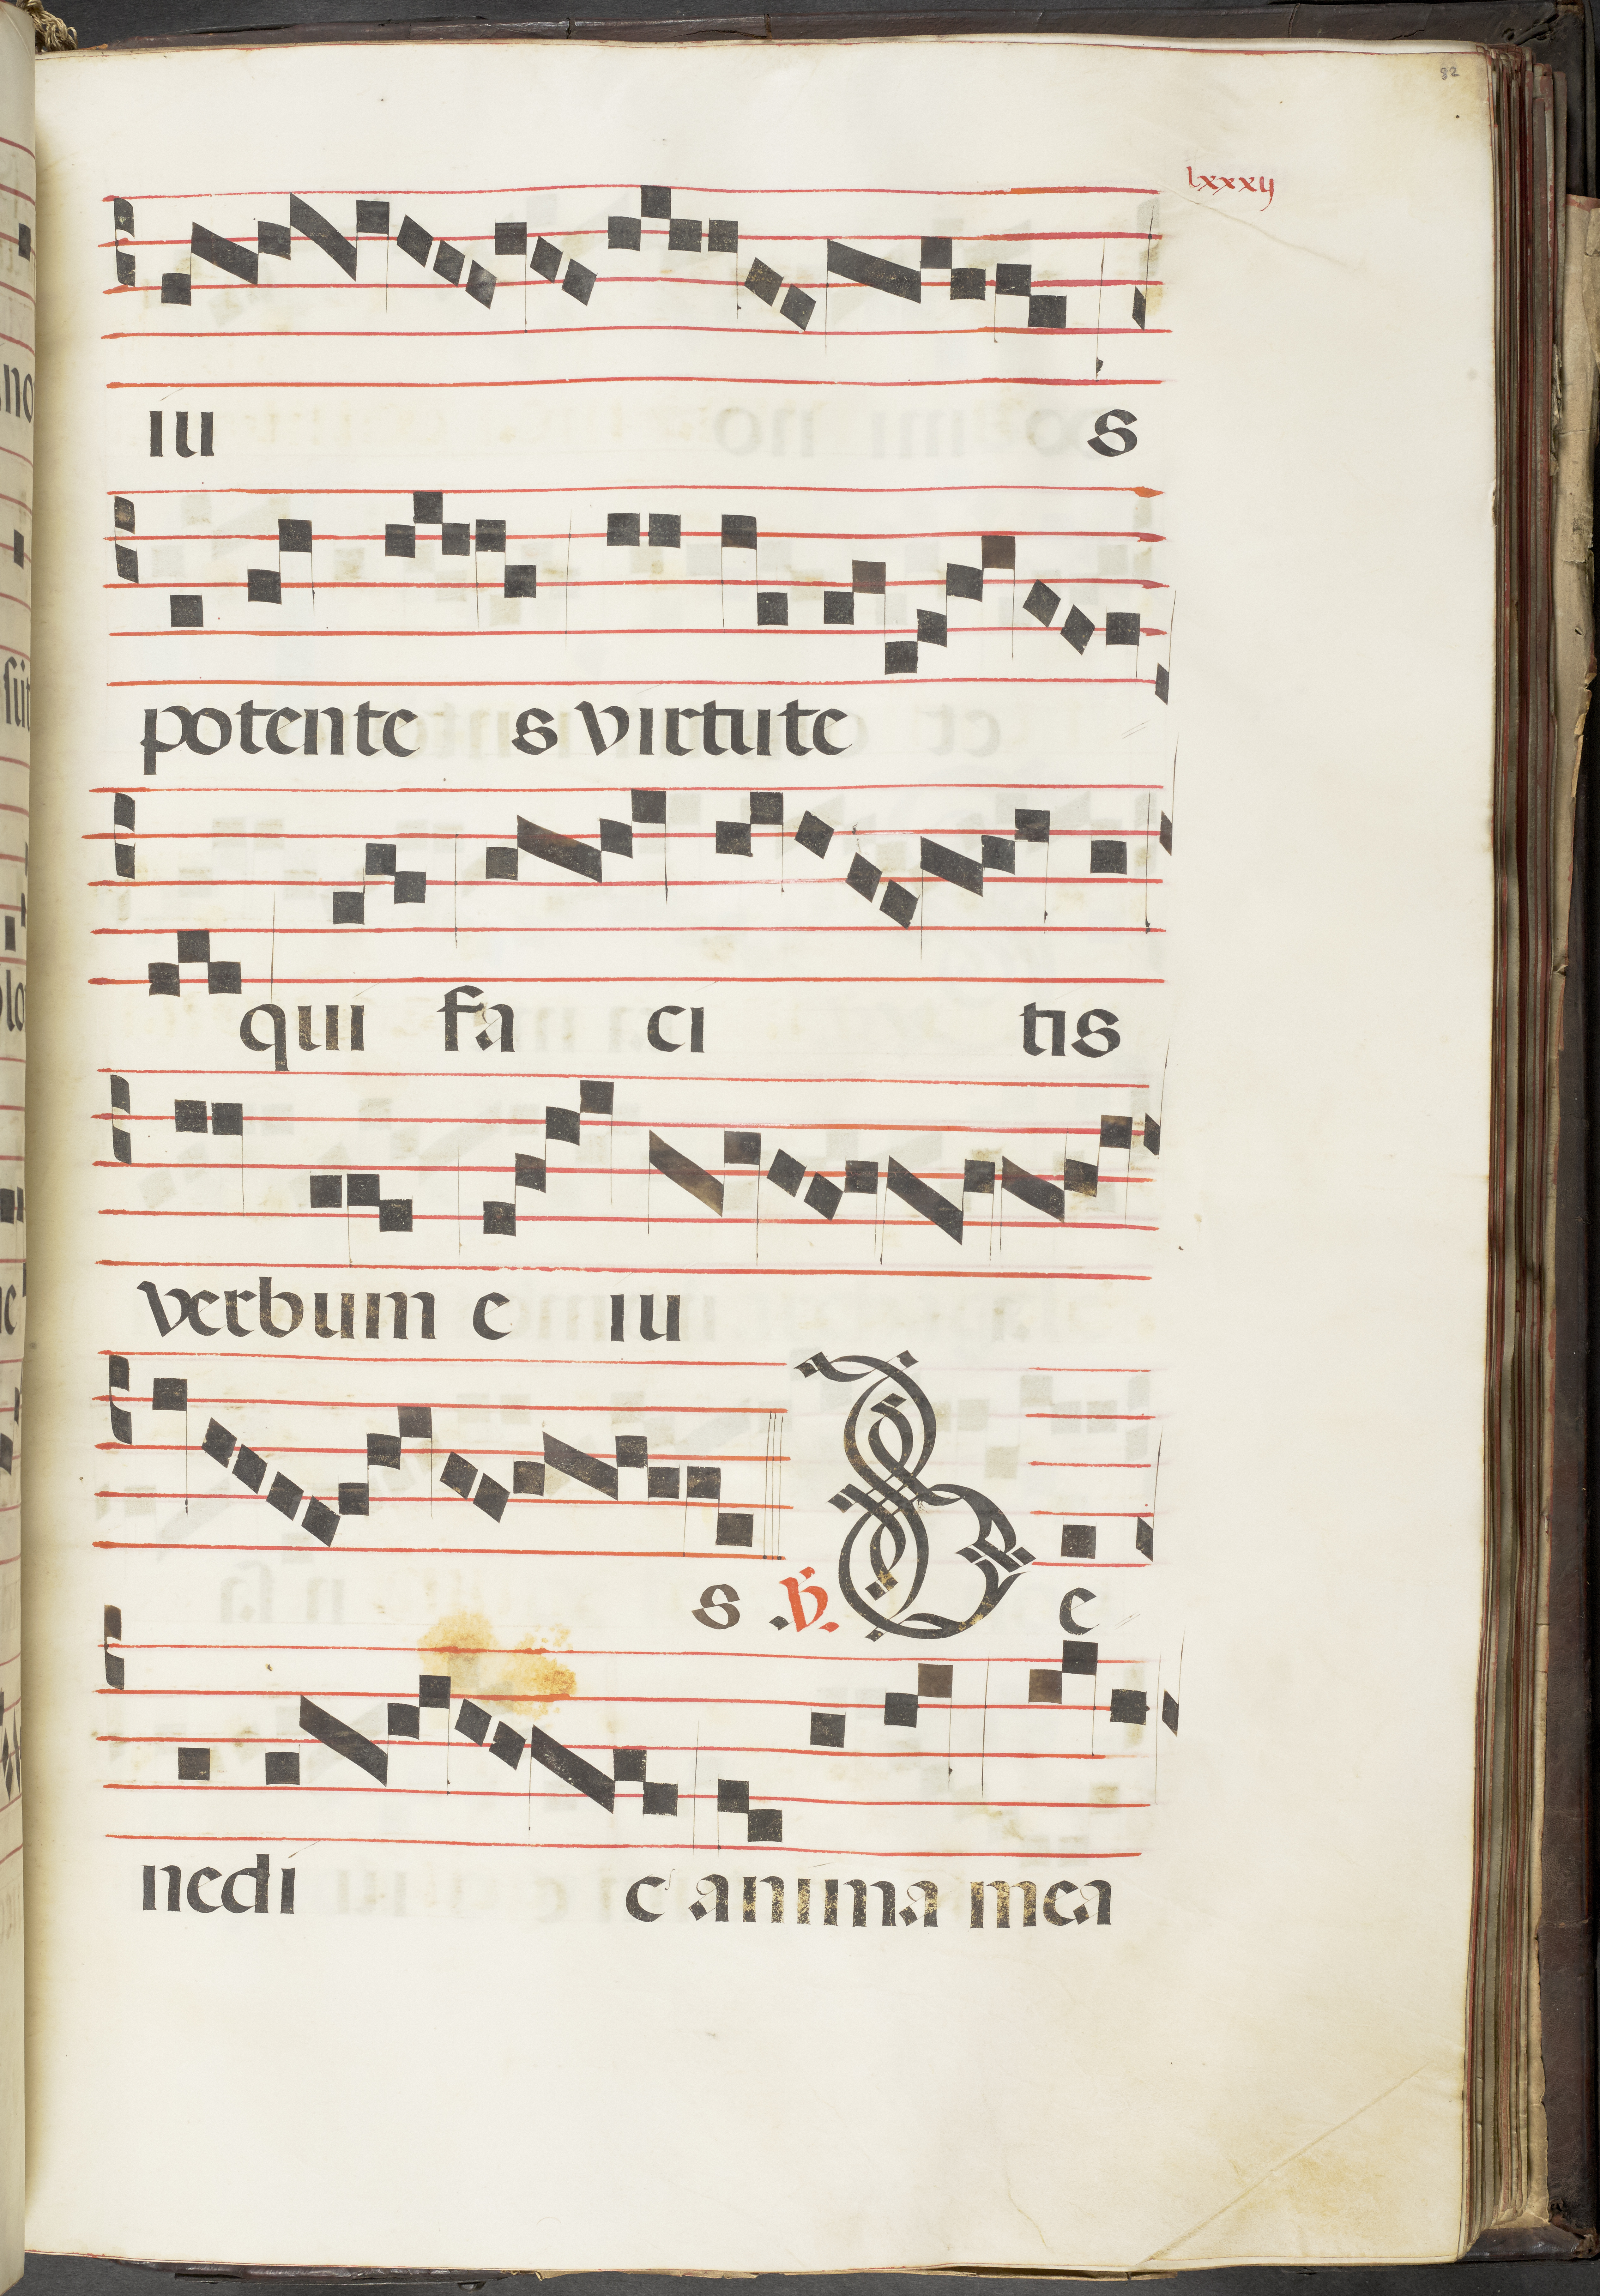 82
lxxxij
iu s
potente s virtute
qui fa ci tis
verbum e iu
s .℣. B e
nedi c anima mea